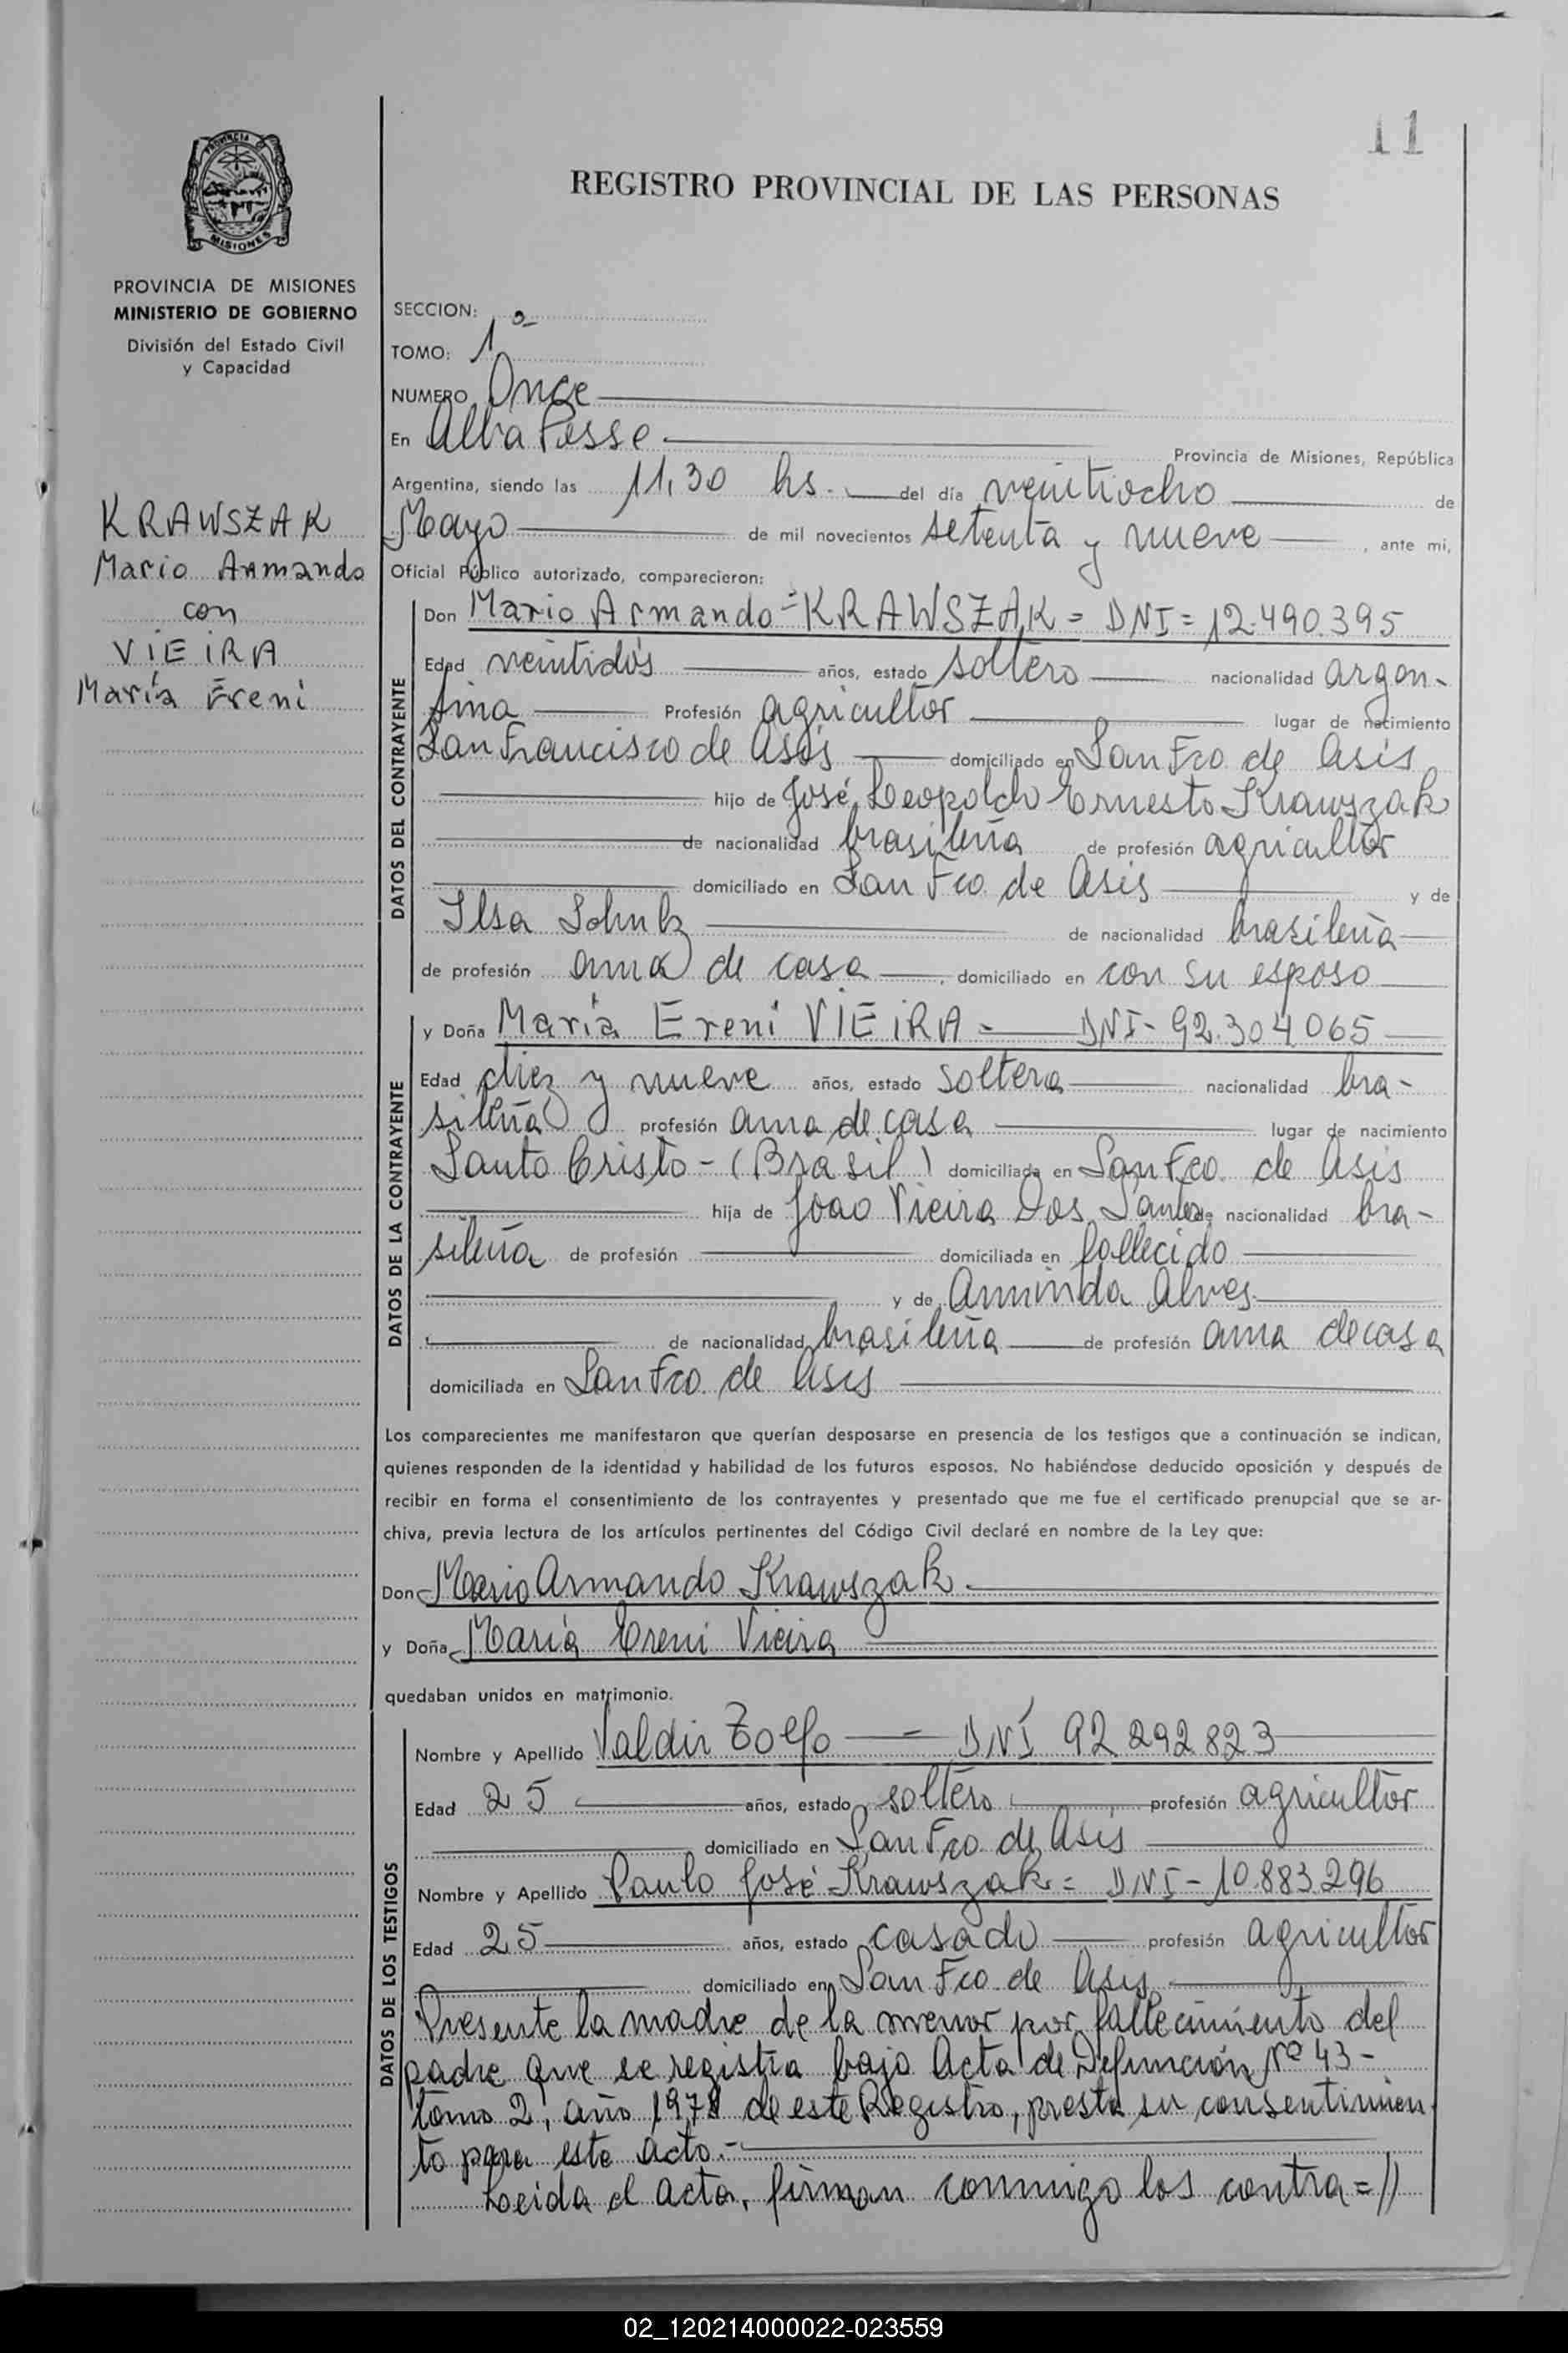 11
REGISTRO PROVINCIAL DE LAS PERSONAS
PROVINCIA
MISIONES
PROVINCIA DE MISIONES
MINISTERIO DE GOBIERNO
División del Estado Civil
y Capacidad
KRAWSZAK
Mario Armando
con
VIEIRA
María Ereni
SECCION:
TOMO: 1º
NUMERO Once
En Alba Posse Provincia de Misiones, República
Argentina, siendo las 11,30 hs. del día veintiocho de
Mayo de mil novecientos setenta y nueve, ante mi,
Oficial Público autorizado, comparecieron:
DATOS DEL CONTRAYENTE
Don Mario Armando = KRAWSZAK = DNI = 12.490.395
Edad veintidós años, estado soltero nacionalidad argen-
tina Profesión agricultor lugar de nacimiento
San Francisco de Asís domiciliado en San Fco de Asís
hijo de José Leopoldo Ernesto Krawszak
de nacionalidad brasileña de profesión agricultor
domiciliado en San Fco. de Asís y de
Ilsa Schulz de nacionalidad brasileña
de profesión ama de casa, domiciliado en con su esposo
DATOS DE LA CONTRAYENTE
y Doña María Ereni VIEIRA - DNI - 92.304065
Edad diez y nueve años, estado soltera nacionalidad bra-
sileña profesión ama de casa lugar de nacimiento
Santo Cristo - (Brasil) domiciliada en San Fco. de Asís
hija de Joao Vieira Dos Santos de nacionalidad bra-
sileña de profesión domiciliada en fallecido
y de Alves
de nacionalidad brasileña de profesión ama de casa
domiciliada en San Fco. de Asís
Los comparecientes me manifestaron que querían desposarse en presencia de los testigos que a continuación se indican,
quienes responden de la identidad y habilidad de los futuros esposos. No habiéndose deducido oposición y después de
recibir en forma el consentimiento de los contrayentes y presentado que me fue el certificado prenupcial que se ar-
chiva, previa lectura de los artículos pertinentes del Código Civil declaré en nombre de la Ley que:
Don Mario Armando Krawszak.
y Doña María Ereni Vieira
quedaban unidos en matrimonio.
DATOS DE LOS TESTIGOS
Nombre y Apellido Valdir - DNI 92 292 823
Edad 25 años, estado soltero profesión agricultor
domiciliado en San Fco. de Asís
Nombre y Apellido Paulo José Krawszak = DNI - 10.883.296
Edad 25 años, estado casado profesión agricultor
domiciliado en San Fco. de Asís
Presente la madre de la menor por fallecimiento del
padre que se registra bajo Acta de Defunción Nº 43 -
tomo 2, año 1978 de este Registro, presta su consentimien
to para este acto.-
Leida el acta, firman conmigo los contra=//
02_120214000022-023559